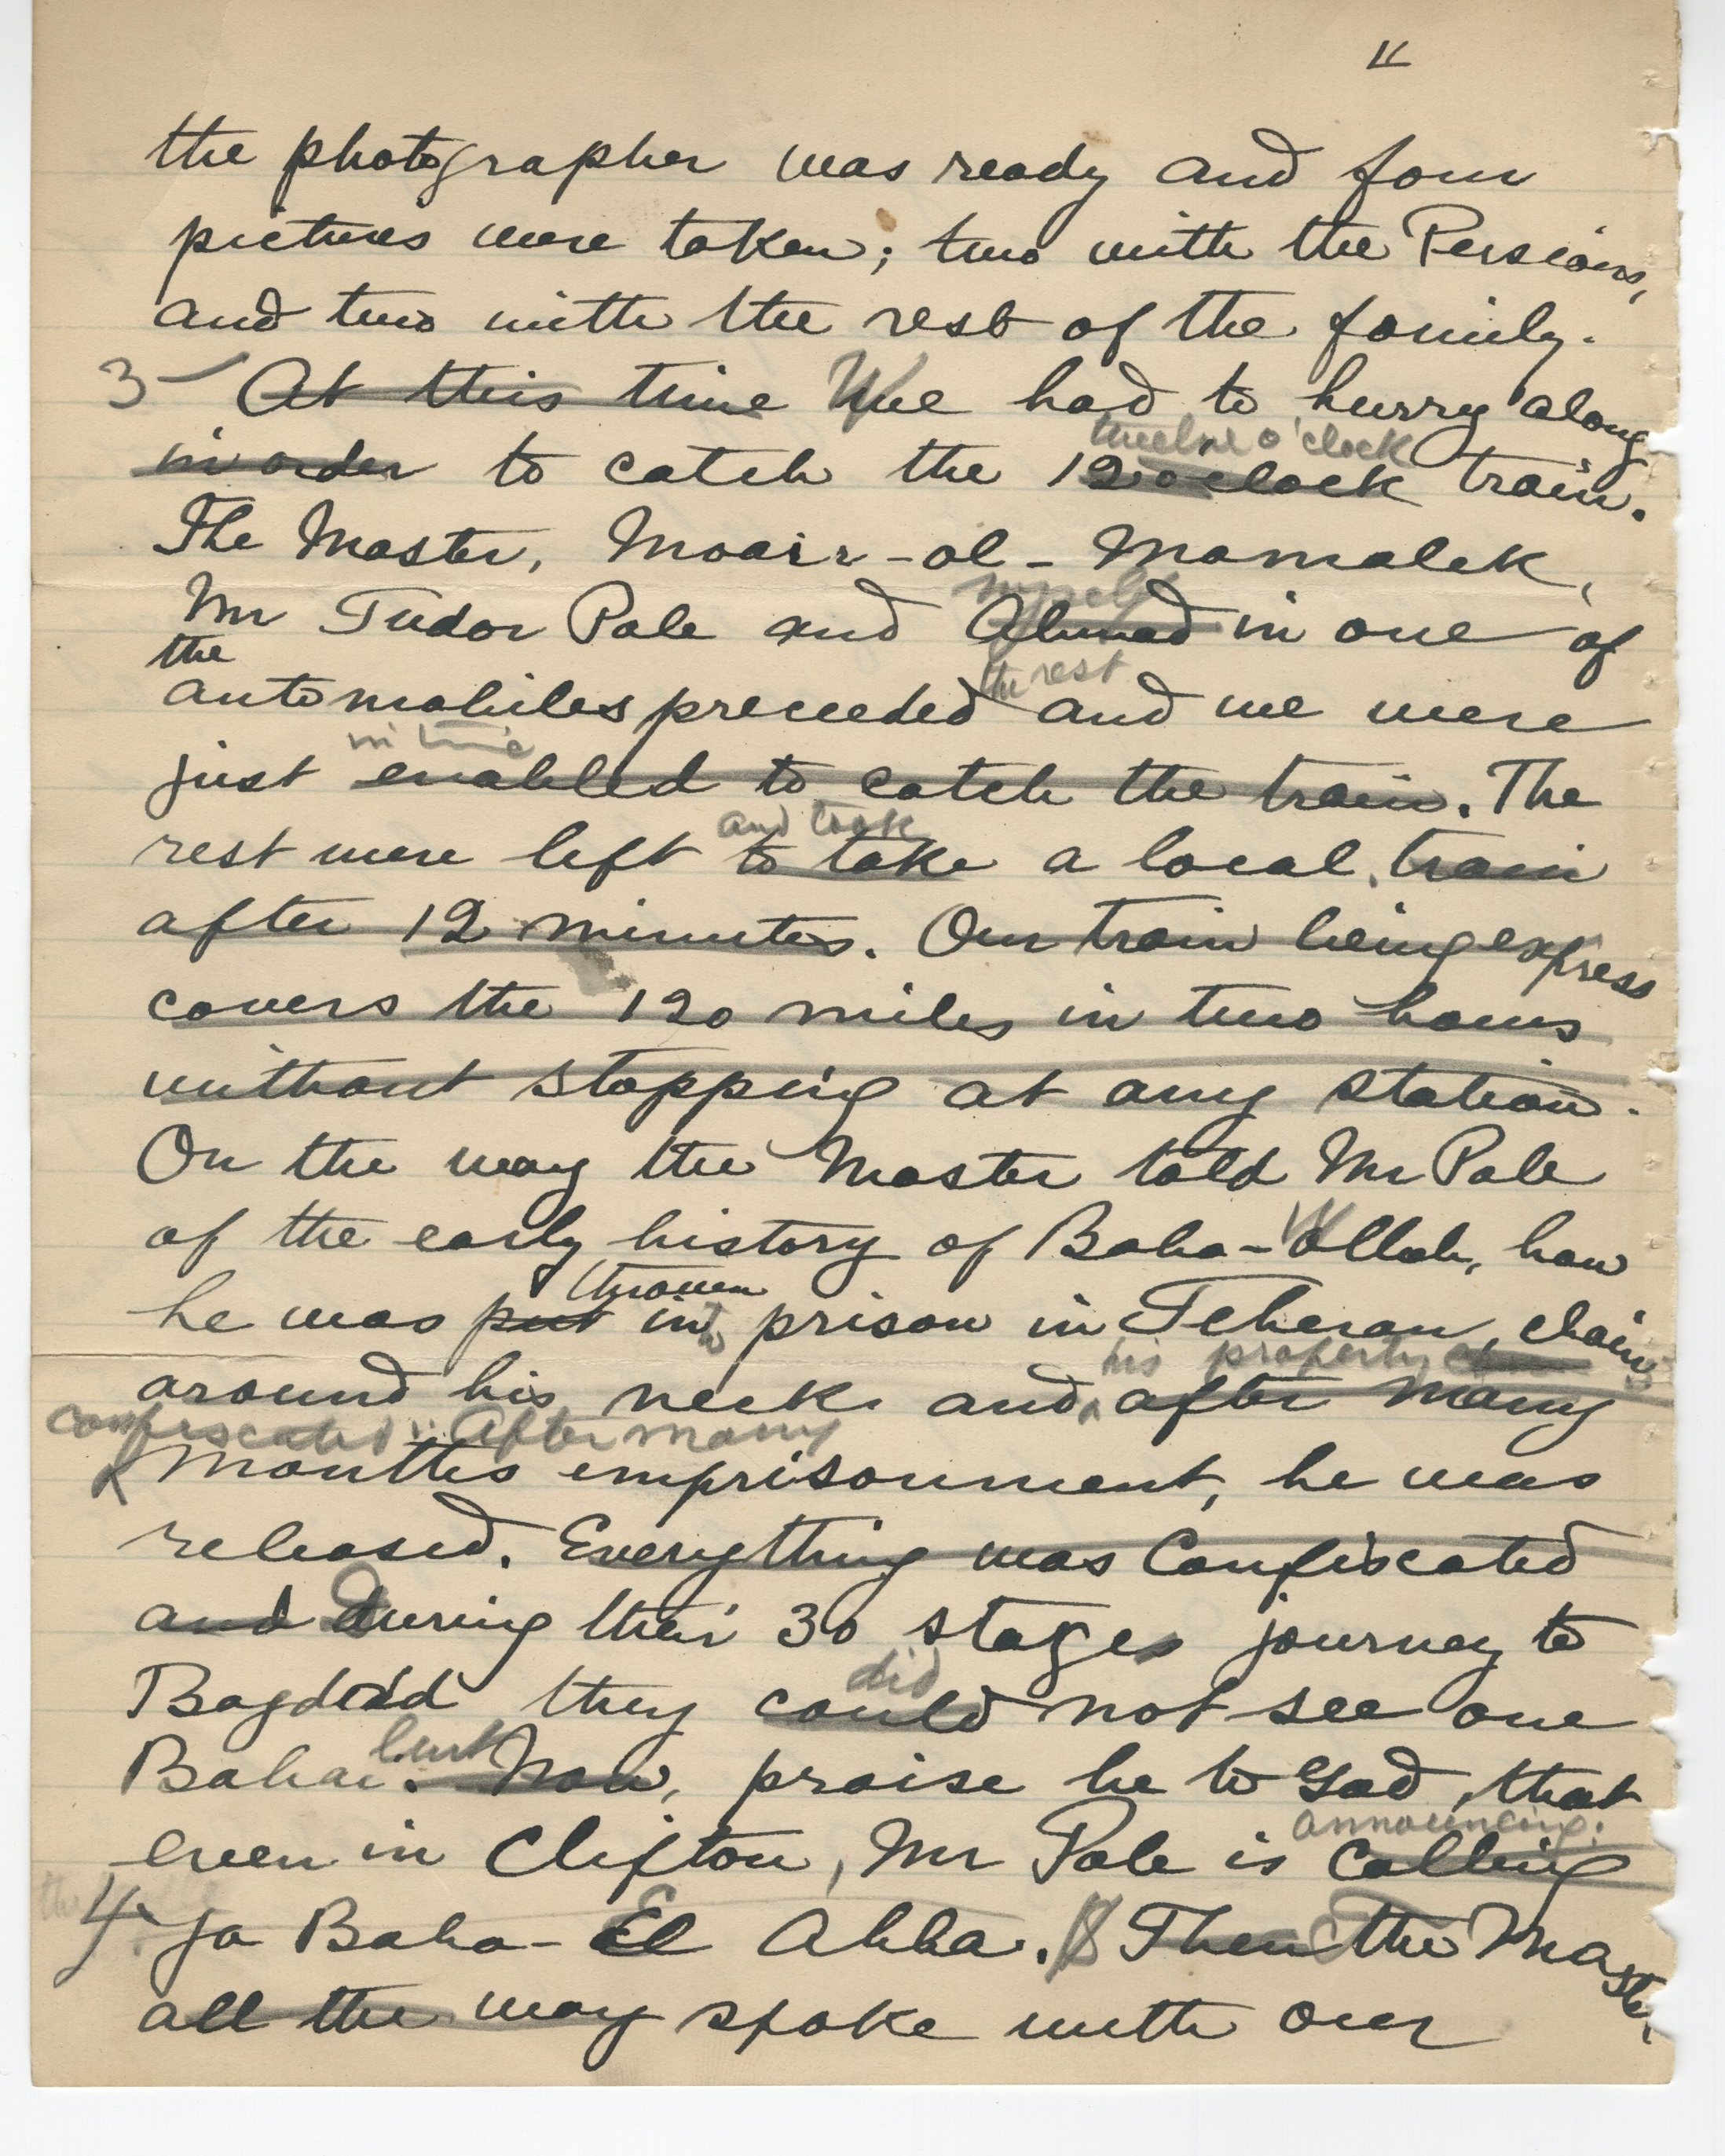 11
the photographer was ready and four
pictures were taken; two with the Persians,
and two with the rest of the family.
3 At this time We had to hurry along
twelve o'clock
in order to catch the 12 o'clock train.
The Master, Moair-ol-Mamalek,
myself
Mr Tudor Pole and Ahmad in one of
the
the rest
automobiles preceeded and we were
in time
just enabled to catch the train. The
and took
rest were left to take a local train
after 12 minutes. Our train being express
covers the 120 miles in two hours
without stopping at any station.
On the way the Master told Mr Pole
of the early history of Baha-Ullah, how
thrown
he was put into prison in Teheran, chains
his property
around his neck and after many
confiscated. After many
months imprisonment, he was
released. Everything was Confiscated
and During their 30 stages journey to
did
Bagdad they could not see one
but
Bahai. Now, praise be to God, that
announcing
even in Clifton, Mr Pole is calling
4 Ya Baha-El Abha. Then The Master
all the way spoke with our